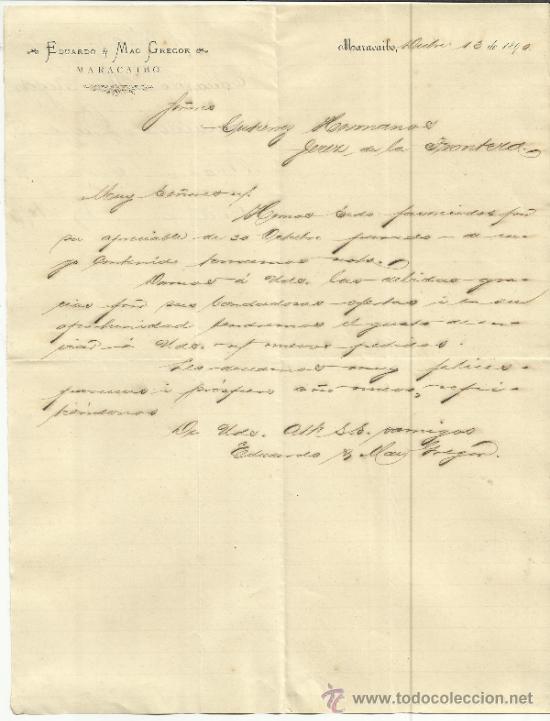 EDUARDO & MAC GREGOR
MARACAIBO
Maracaibo, Dicbre 13 de 1890.
Señores
Gutierrez Hermanos
Jerez de la Frontera.
Muy Señores n/.
Hemos sido favorecidos por
su apreciable de 30 Octubre pasado de cu
yo contenido tomamos nota.
Damos á Uds. las debidas gra
cias por sus bondadosas ofertas i en su
oportunidad tendremos el gusto de en
viar á Uds. nuevos pedidos.
Les deseamos muy felices
pascuas i próspero año nuevo, repi
tiéndonos
De Uds. Att. S.S. y amigos
Eduardo & Mac Gregor.
www.todocoleccion.net